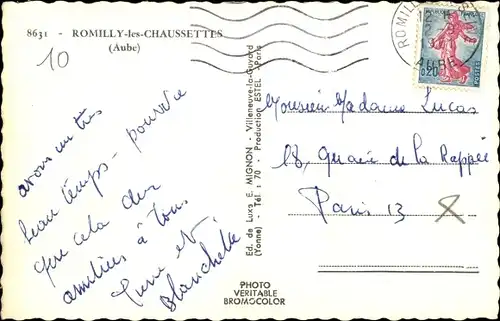 8631 - ROMILLY-les-CHAUSSETTES
(Aube)
10
avons un très
beau temps - pourvu
que cela dur
amitiés à tous
et
Blanchette
Ed. de Luxe E. MIGNON - Villeneuve-la-Guyard
(Yonne) - Tél : 70 - Production ESTEL - Paris
PHOTO
VERITABLE
BROMOCOLOR
ROMILLY
AUBE
0,20
POSTES
Monsieur Madame Lucas
18, Quai de la Rappée
Paris 13